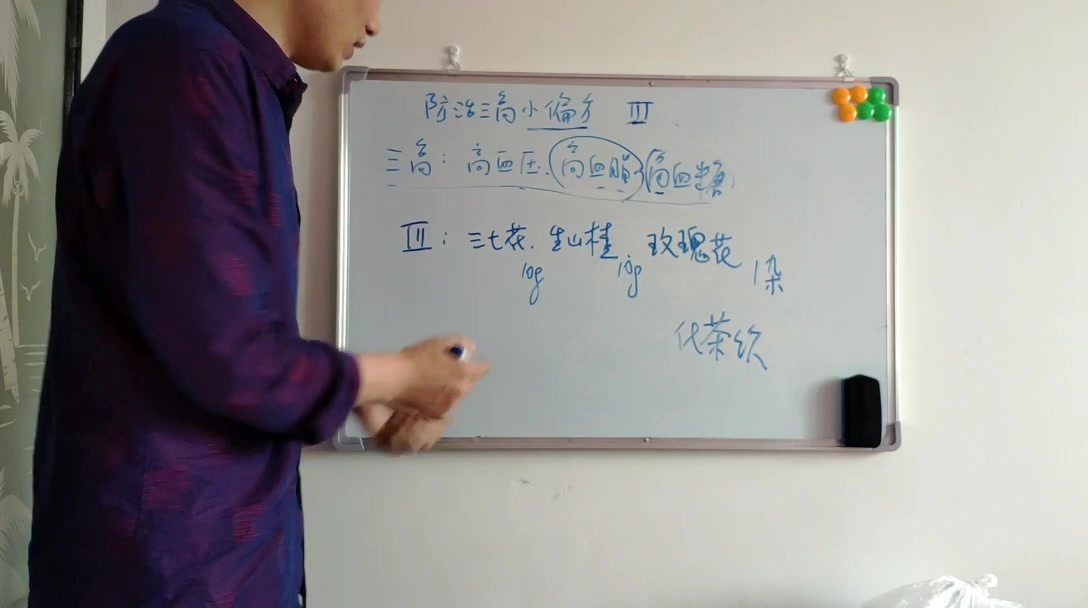 防治三高小偏方 III
三高: 高血压.高血脂.高血糖
III: 三七花. 生山楂. 玫瑰花
10g 10g 1朵
代茶饮